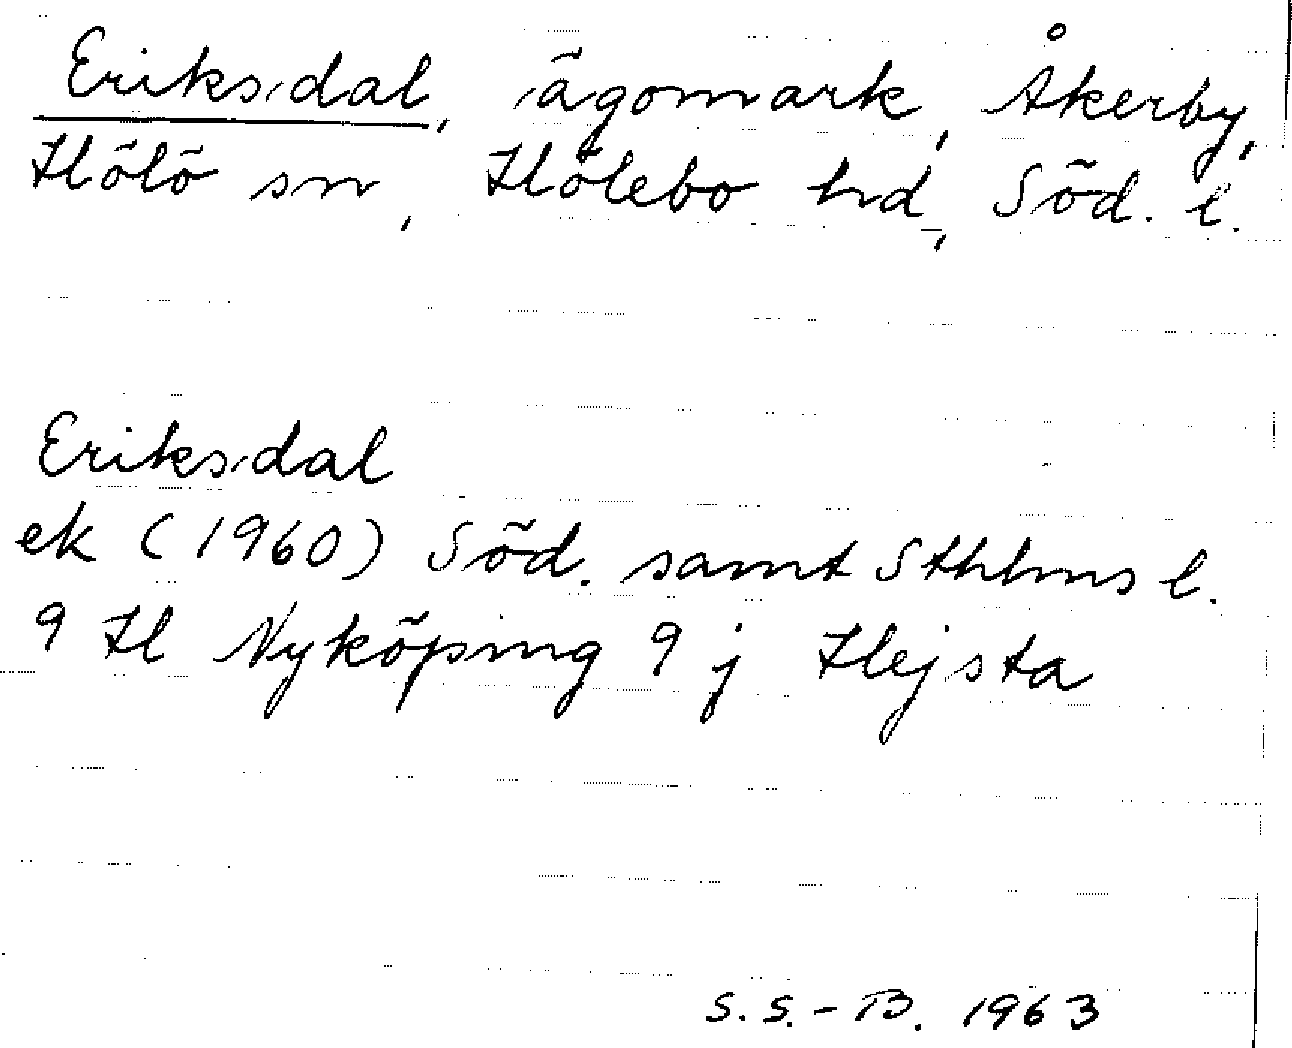 Eriksdal, ägomark, Åkerby,
Hölö sn, Hölebo hd, Söd. l.
Eriksdal
ek (1960) Söd. samt Sthlms l.
9 H Nyköping 9 j Hejsta
S.S.-B. 1963